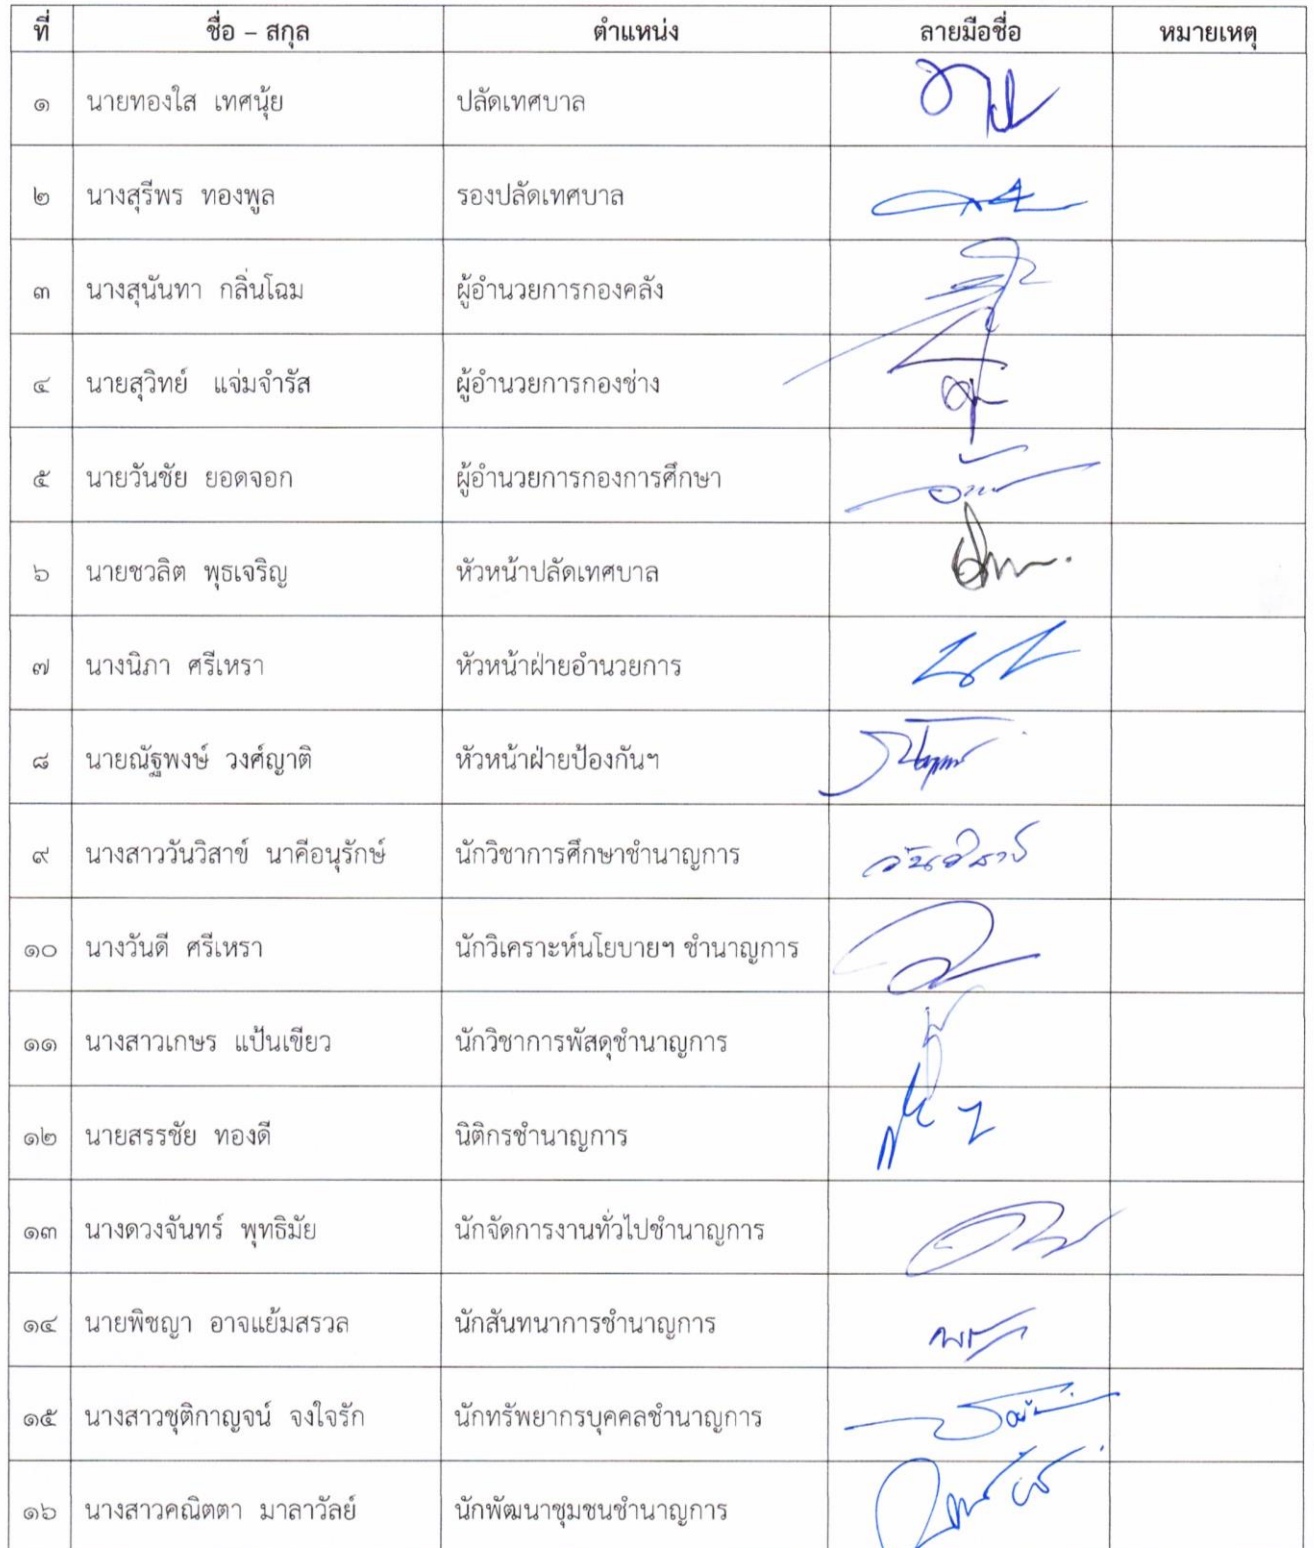 ที่ ชื่อ – สกุล ตำแหน่ง ลายมือชื่อ หมายเหตุ
๑ นายทองใส เทศนุ้ย ปลัดเทศบาล
๒ นางสุรีพร ทองพูล รองปลัดเทศบาล
๓ นางสุนันทา กลิ่นโฉม ผู้อำนวยการกองคลัง
๔ นายสุวิทย์ แจ่มจำรัส ผู้อำนวยการกองช่าง
๕ นายวันชัย ยอดจอก ผู้อำนวยการกองการศึกษา
๖ นายชวลิต พุธเจริญ หัวหน้าปลัดเทศบาล
๗ นางนิภา ศรีเหรา หัวหน้าฝ่ายอำนวยการ
๘ นายณัฐพงษ์ วงศ์ญาติ หัวหน้าฝ่ายป้องกันฯ
๙ นางสาววันวิสาข์ นาคีอนุรักษ์ นักวิชาการศึกษาชำนาญการ วันวิสาข์
๑๐ นางวันดี ศรีเหรา นักวิเคราะห์นโยบายฯ ชำนาญการ
๑๑ นางสาวเกษร แป้นเขียว นักวิชาการพัสดุชำนาญการ
๑๒ นายสรรชัย ทองดี นิติกรชำนาญการ
๑๓ นางดวงจันทร์ พุทธิมัย นักจัดการงานทั่วไปชำนาญการ
๑๔ นายพิชญา อาจแย้มสรวล นักสันทนาการชำนาญการ
๑๕ นางสาวชุติกาญจน์ จงใจรัก นักทรัพยากรบุคคลชำนาญการ
๑๖ นางสาวคณิตตา มาลาวัลย์ นักพัฒนาชุมชนชำนาญการ